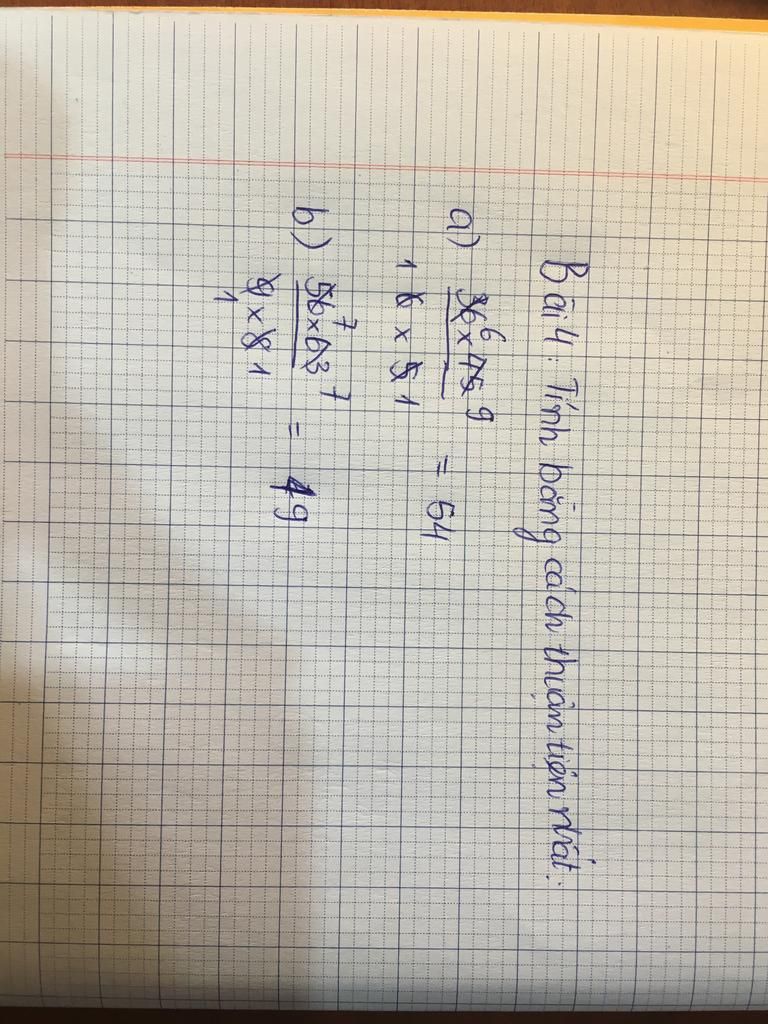 Bài 4: Tính bằng cách thuận tiện nhất:
a) 36 6 × 45 9
1 6 × 5 1 = 54
b) 56 7 × 63 7
9 × 8 1 = 49
1